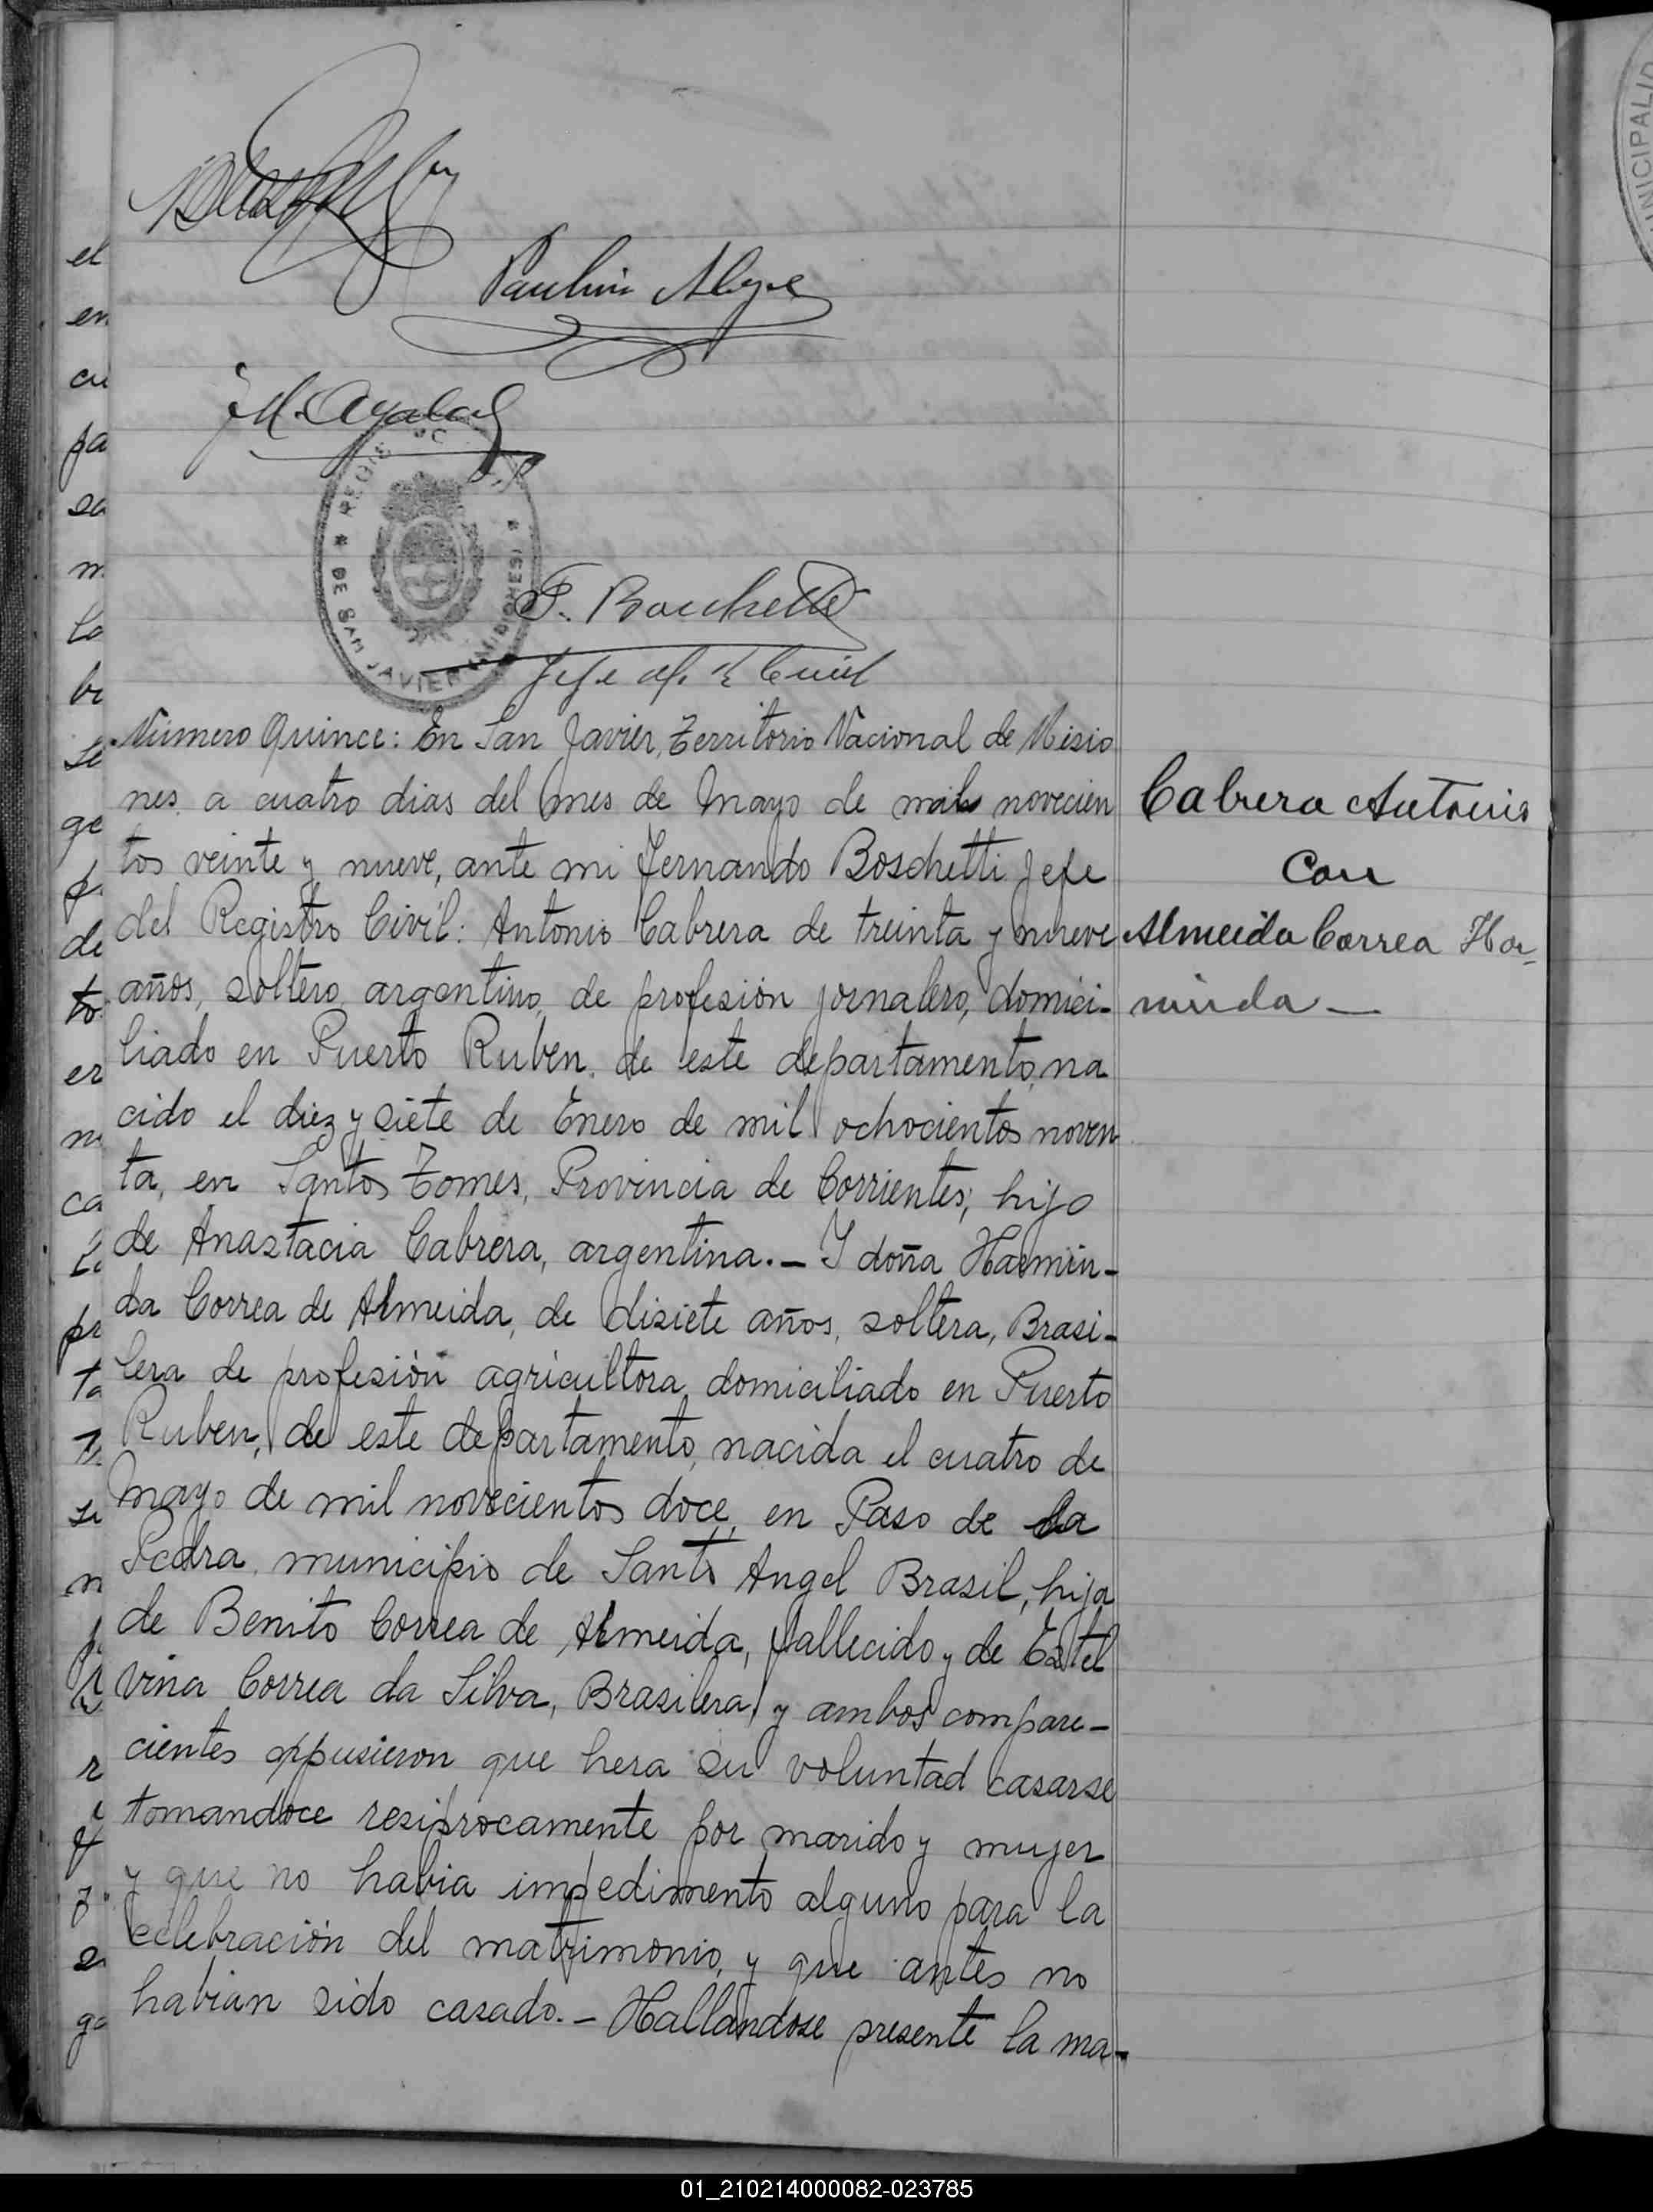 Paulin Alegre
J.M. Ayala
REGIS
DE SAN JAVIER (MISIONES)
F. Boschetti
Jefe del R. Civil
Número Quince: En San Javier, Territorio Nacional de Misio
nes a cuatro dias del mes de Mayo de mil novecien
tos veinte y nueve, ante mi Fernando Boschetti Jefe
del Registro Civil: Antonio Cabrera de treinta y nueve
años, soltero, argentino, de profesión jornalero, domici-
liado en Puerto Ruben, de este departamento, na
cido el diez y siete de Enero de mil ochocientos noven
ta, en Santos Tomes, Provincia de Corrientes, hijo
de Anastacia Cabrera, argentina.- Y doña Harmin-
da Correa de Almeida, de disiete años, soltera, Brasi-
lera de profesión agricultora, domiciliado en Puerto
Ruben, de este departamento, nacida el cuatro de
Mayo de mil novecientos doce, en Paso de la
Pedra, municipio de Santo Angel Brasil, hija
de Benito Correa de Almeida, fallecido y de Estel
vina Correa da Silva, Brasilera, y ambos compare-
cientes oppusieron que hera su voluntad casarse
tomandoce resiprocamente por marido y mujer
y que no habia impedimento alguno para la
celebración del matrimonio, y que antes no
habian sido casado.- Hallandose presente la ma-
Cabrera Antonio
Con
Almeida Correa Har-
minda -
el
en
cu
pa
sa
m
lo
br
se
ge
de
to
er
m
ca
pr
ta
se
n
r
ga
UNICIPALID
01_210214000082-023785